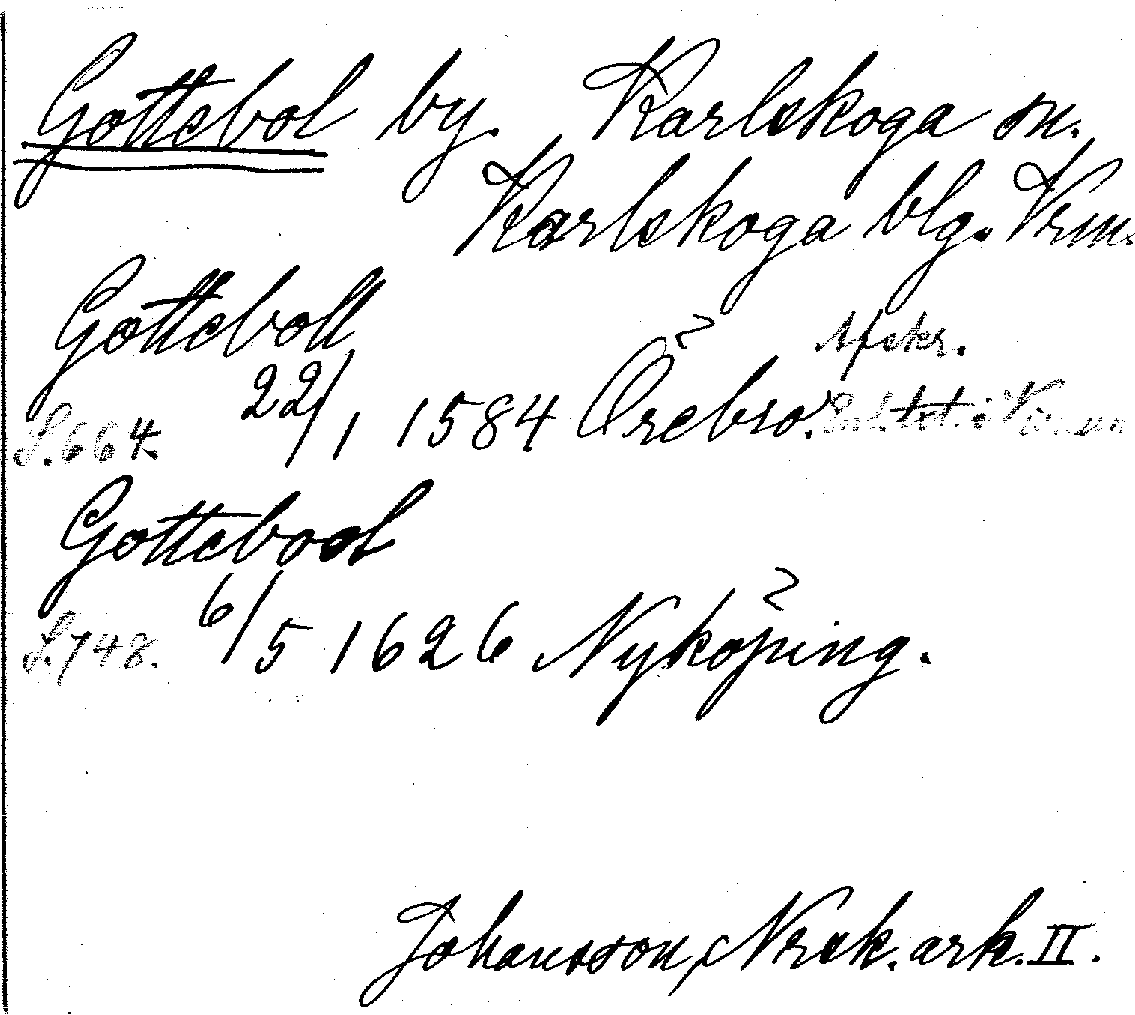 Gottebol by. Karlskoga sn.
Karlskoga blg. Vrm.
Gotteboll
Afskr.
S. 664. 22/1 1584 Örebro.
Gottebool
S. 748. 6/5 1626 Nyköping.
Johansson, Noraskog. ark. II.